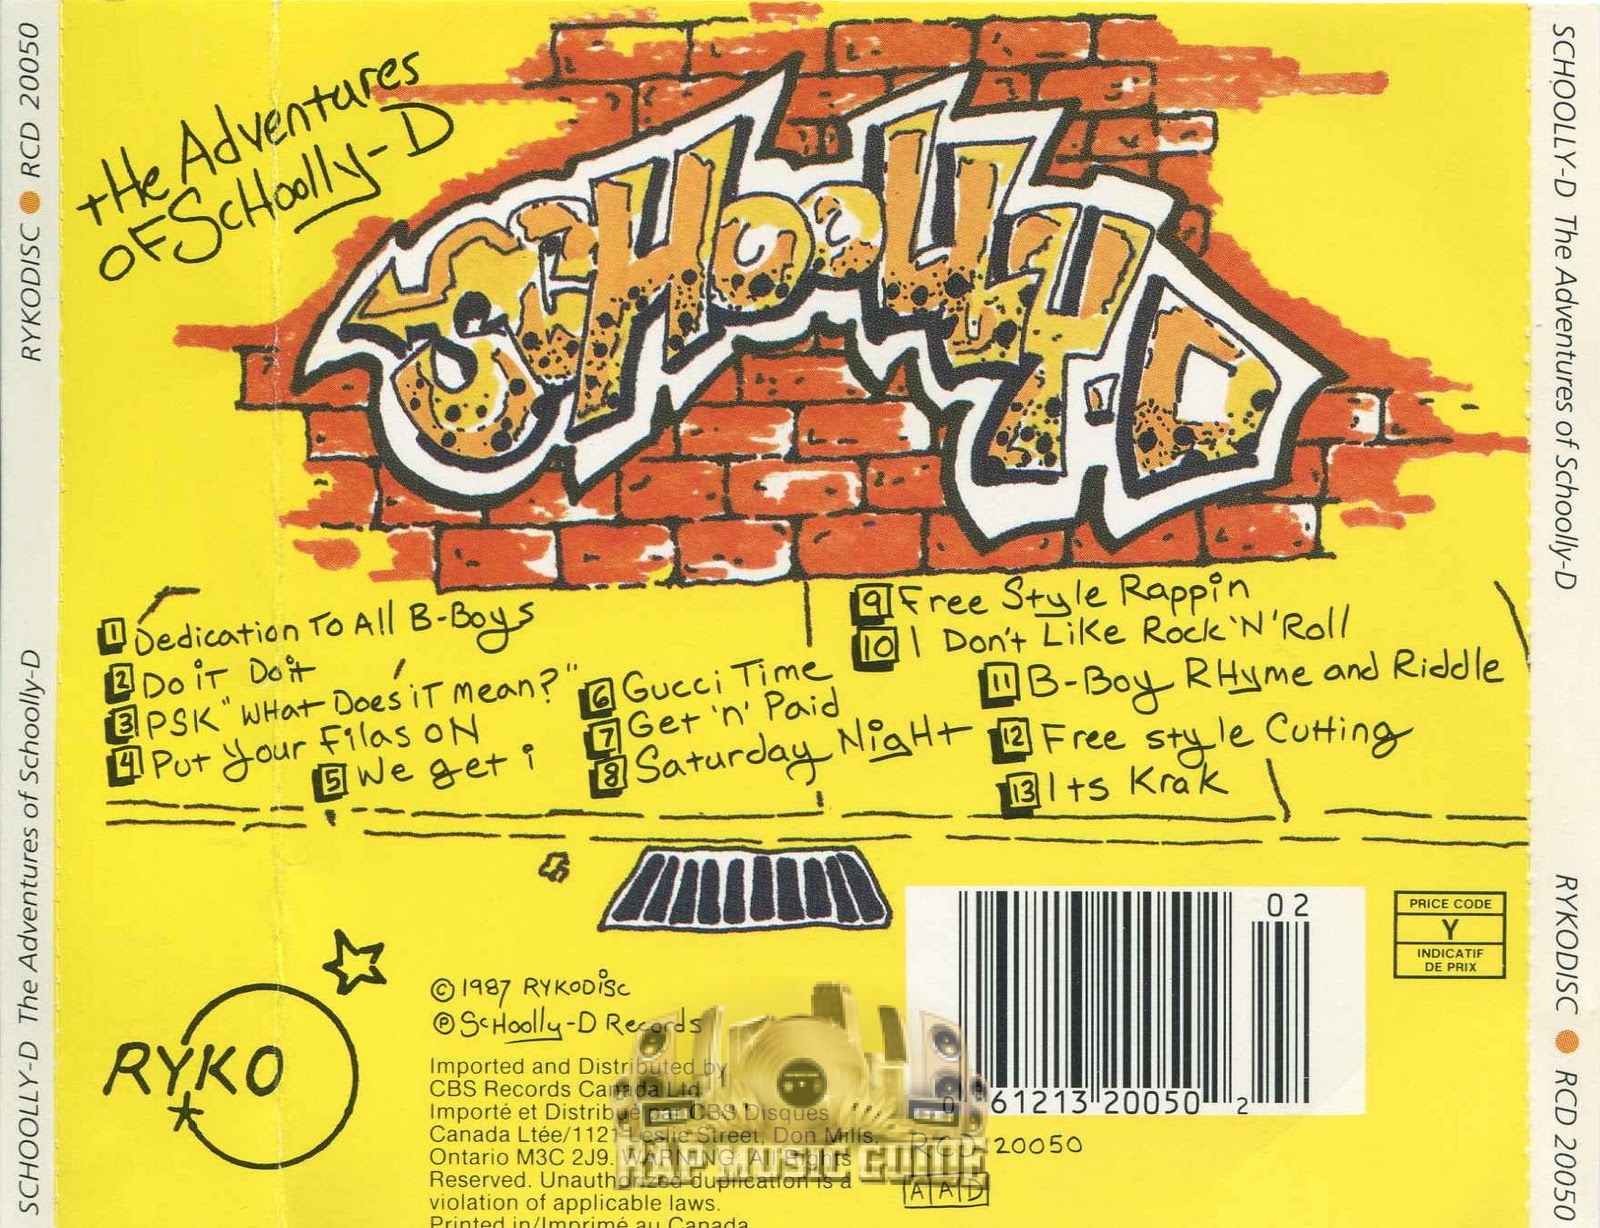 RYKODISC ● RCD 20050
SCHOOLLY-D The Adventures of Schoolly-D
tHe Adventures
OF ScHoolly-D
ScHooLLY-D
1 Dedication To All B-Boys
2 Do iT Do it
3 PSK "WHat Does iT mean?"
4 Put Your Filas ON
5 We get i
6 Gucci Time
7 Get 'n' Paid
8 Saturday NigHt
9 Free Style Rappin
10 I Don't Like Rock 'N' Roll
11 B-Boy RHyme and Riddle
12 Free style Cutting
13 Its Krak
RYKO
© 1987 RYKODisc
℗ ScHoolly-D Records
Imported and Distributed by
CBS Records Canada Ltd
Importé et Distribué par CBS Disques
Canada Ltée/1121 Leslie Street, Don Mills,
Ontario M3C 2J9. WARNING: All Rights
Reserved. Unauthorized duplication is a
violation of applicable laws.
Printed in/Imprimé au Canada
RAP MUSIC GUIDE
02
0 61213 20050 2
RCD 20050
AAD
PRICE CODE
Y
INDICATIF
DE PRIX
SCHOOLLY-D The Adventures of Schoolly-D
RYKODISC ● RCD 20050